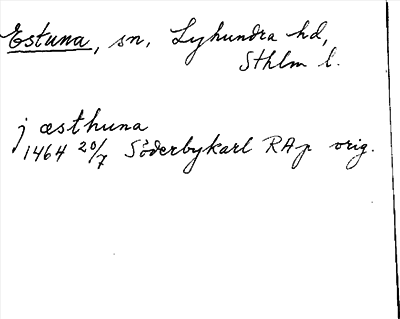 Estuna, sn, Lyhundra hd,
Sthlm l.
j æsthuna
1464 20/7 Söderbykarl RAp orig.